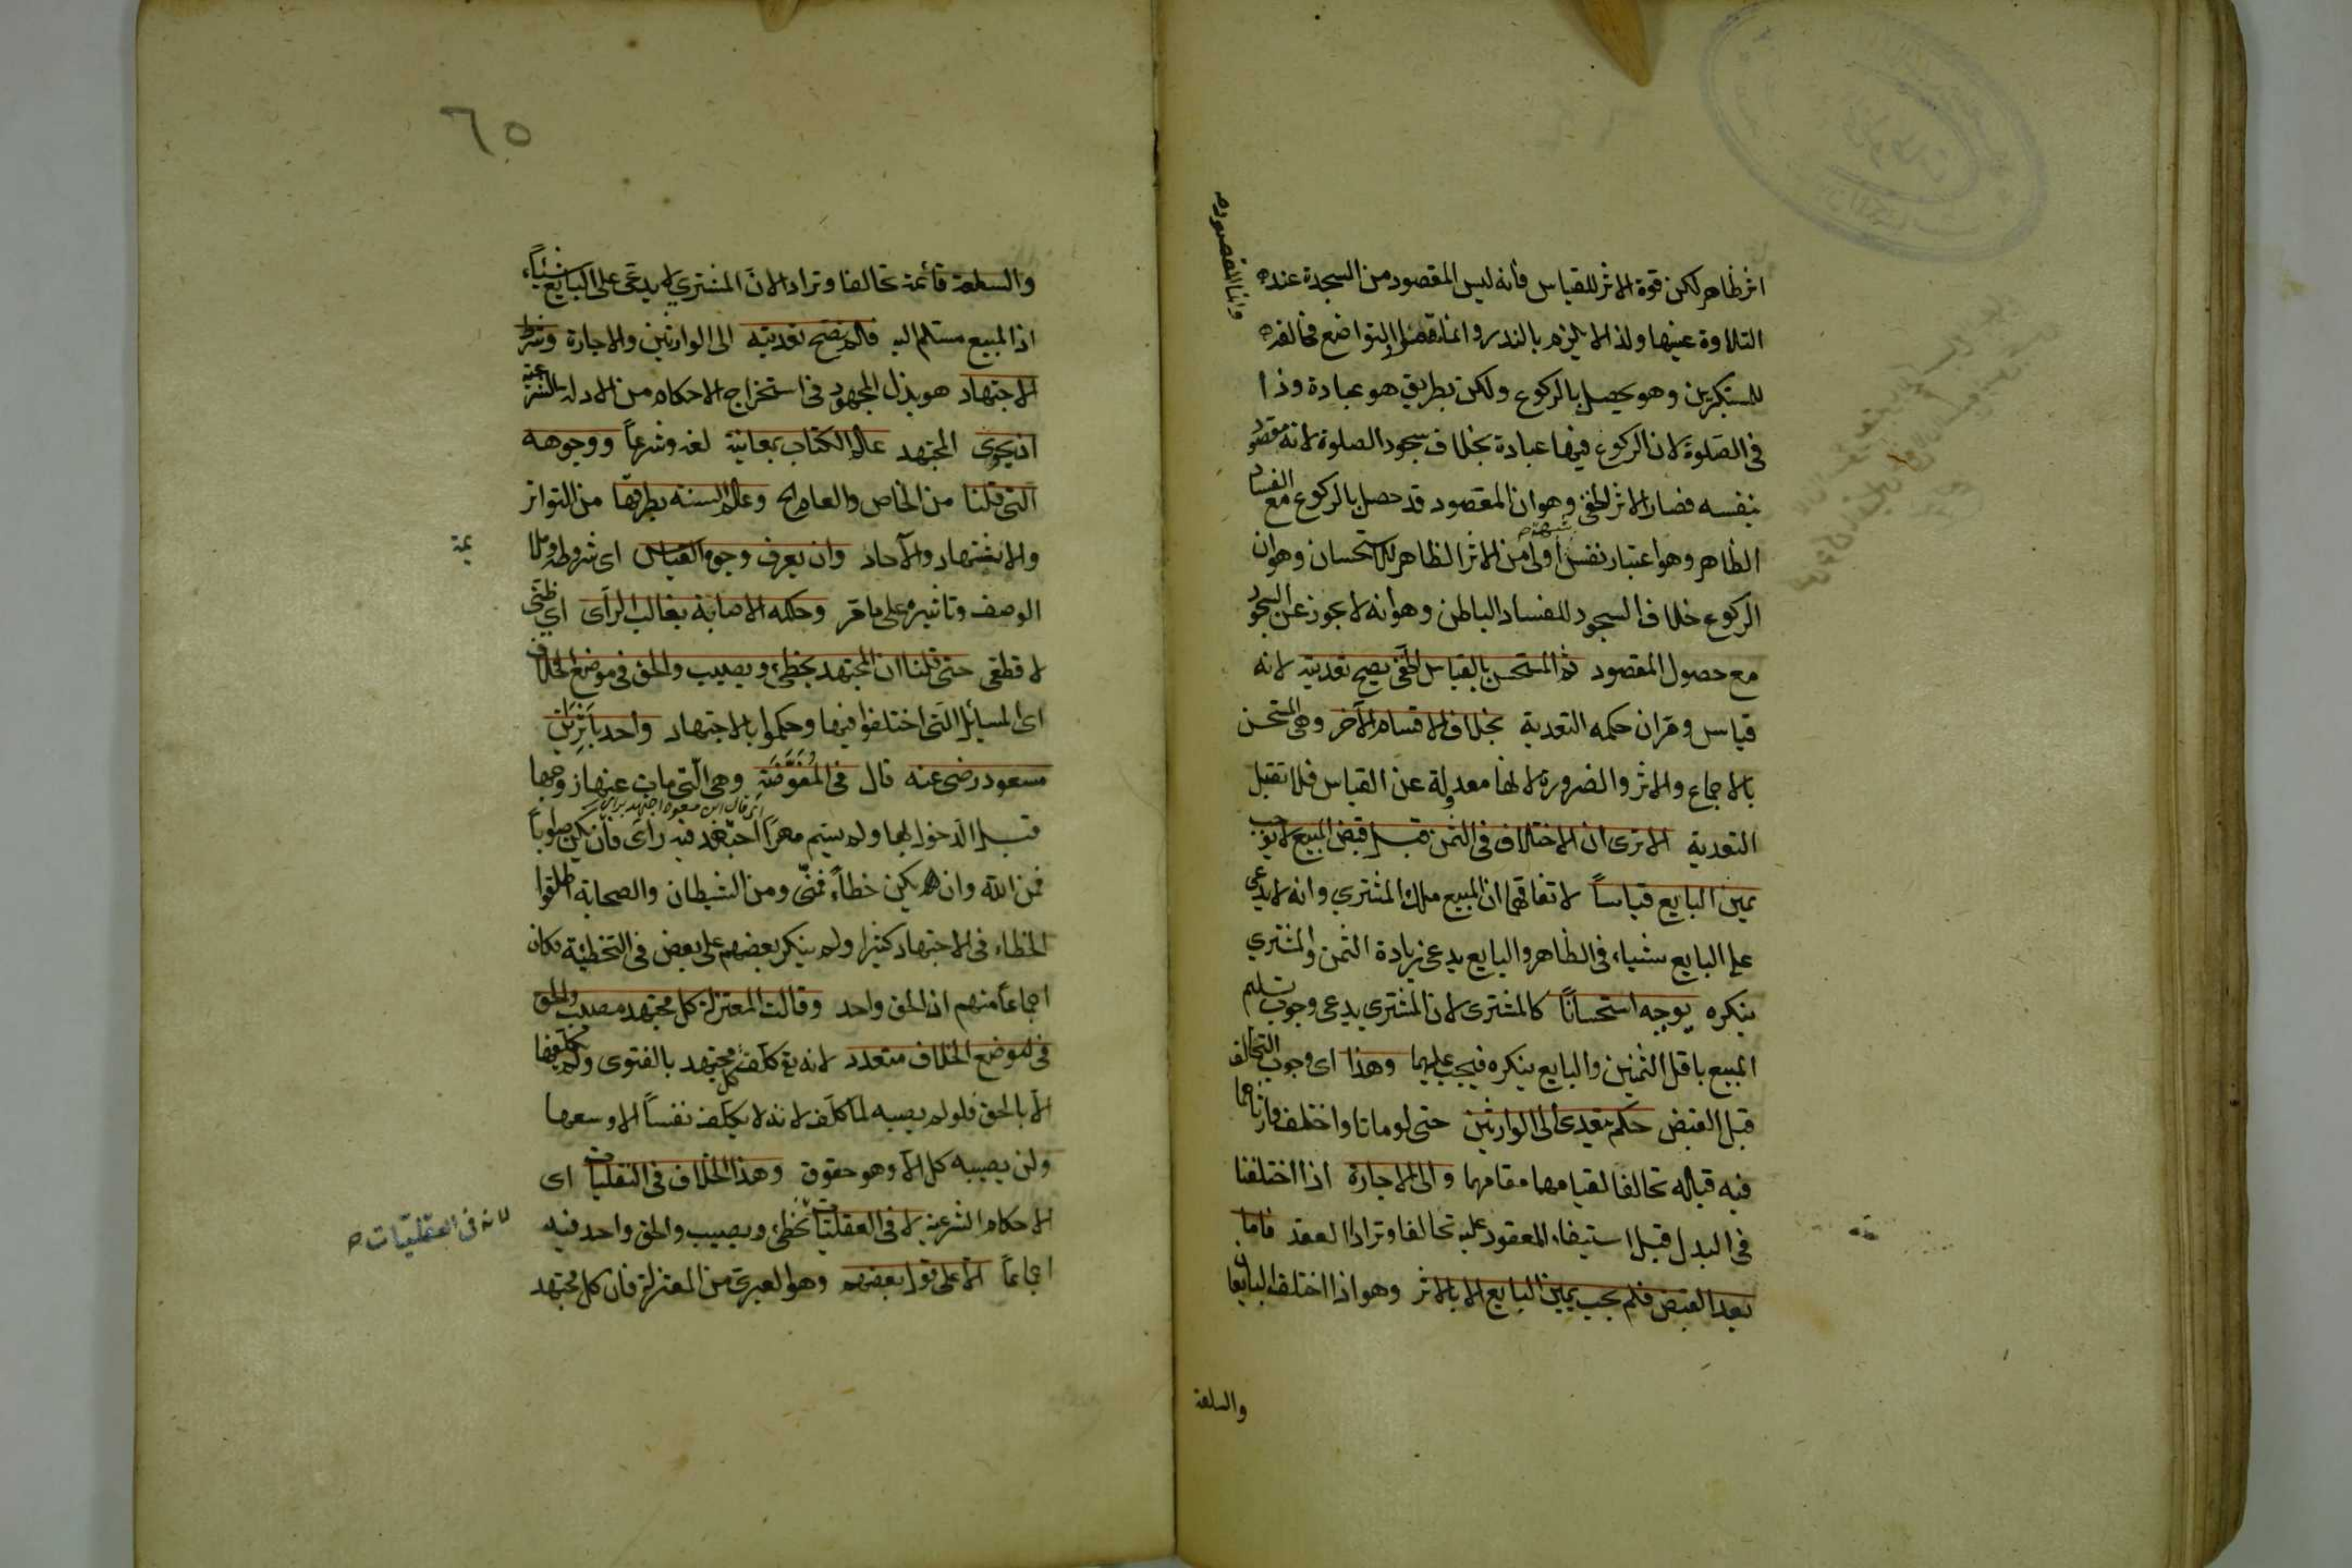 اثر ظاهر لكن قوة الاثر للقياس فانه ليس المقصود من السجدة عند
التلاوة عينها ولذا لا يلزم بالنذر وانما التواضع مخالفة
للمتكبرين وهو يحصل بالركوع ولكن بطريق هو عبادة وذا
فى الصلوة لان الركوع فيها عبادة بخلاف سجود الصلوة لانه مقصود
بنفسه فصار الاثر الخفى وهو ان المقصود قد حصل بالركوع مع الفساد
الظاهر وهو اعتبار نفس شبهة اولى من الاثر الظاهر للاستحسان وهو ان
الركوع خلاف السجود للفساد الباطن وهو انه لا يجوز عن السجود
مع حصول المقصود ثم المستحسن بالقياس الخفى يصح تعديته لانه
قياس ومر ان حكمه التعدية بخلاف الاقسام الآخر وهى المستحسن
بالاجماع والاثر والضرورة لانها معدولة عن القياس فلا تقبل
التعدية الا ترى ان الاختلاف فى الثمن قبل قبض المبيع لا يوجب
يمين البايع قياساً لاتفاقهما ان المبيع ملك المشتري وانه لا يدعى
على البايع شيئاء فى الظاهر والبايع يدعى زيادة الثمن والمشتري
ينكره يوجبه استحساناً كالمشترى لان المشتري يدعى وجوب تسليم
المبيع باقل الثمنين والبايع ينكره فيجب عليهما وهذا اى وجوب التحالف
قبل القبض حكم يتعدى الى الوارثين حتى لو ماتا واختلف وارثاهما
فيه قباله تحالفا لقيامهما مقامهما والى الاجارة اذا اختلفا
فى البدل قبل استيفاء المعقود عليه تحالفا وترادا العقد فاما
بعد القبض فلم يجب يمين البايع الا بالاثر وهو اذا اختلف البايعان
والسلعة
وانما المقصود
٦٥
والسلعة قائمة تحالفا وترادا لان المشتري لا يدعى على البايع شيئاً
اذ المبيع مسلم اليه فلم يصح تعديته الى الوارثين والاجارة وشرط
الاجتهاد هو بذل المجهود فى استخراج الاحكام من الادلة الشرعية
ان يحوى المجتهد علم الكتاب بمعانيه لغة وشرعاً ووجوهه
التى قلنا من الخاص والعام الخ وعلم السنه بطرقها من التواتر
والاشتهاد والآحاد وان يعرف وجوه القياس اى شروطه وملا
يمة
الوصف وتاثيره على ما مر وحكمه الاصابة بغالب الرأى اي ظنّى
لا قطعى حتى قلنا ان المجتهد يخطئ ويصيب والحق فى موضع الخلاف
اى المسايل التى اختلفوا فيها وحكموا بالاجتهاد واحد باثر ابن
مسعود رضى عنه قال فى المفوّضة وهى الّتى مات عنها زوجها
اى قال ابن مسعود اجتهد برايى
قبل الدخول بها ولم يسم مهراً اجتهد فيه رأى فان يكن صواباً
فمن الله وان يكن خطاءً فمنّى ومن الشيطان والصحابة اطلقوا
الخطاء فى الاجتهاد كثيرا ولم ينكر بعضهم على بعض فى التخطئة فكان
اجماعاً منهم ان الحق واحد وقالت المعتزلة كل مجتهد مصيب والحق
فى موضع الخلاف متعدد لانه تع كلّف كل مجتهد بالفتوى ولم يكلفها
الا بالحق فلو لم يصبه لما كلّف لانه لا يكلّف نفساً الا وسعها
ولن يصيبه كل الا وهو حقوق وهذا الخلاف فى النقليات اى
الاحكام الشرعية لا فى العقليات تخطئ ويصيب والحق واحد فيه
لانه فى العقليّات
اجماعاً الا على قول بعضهم وهو العبرى من المعتزلة فان كل مجتهد